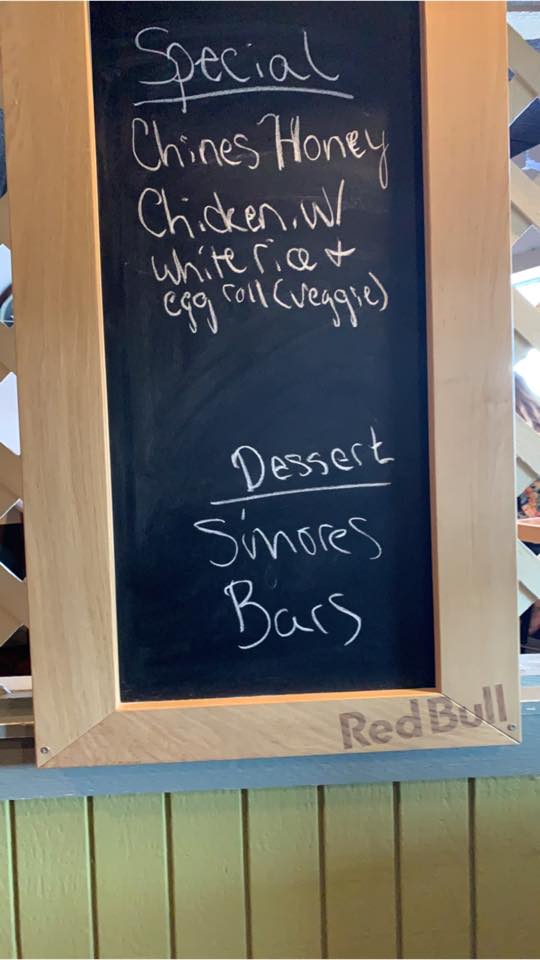 Special
Chines Honey
Chicken w/
white rice +
egg roll (veggie)
Dessert
S'mores
Bars
Red Bull